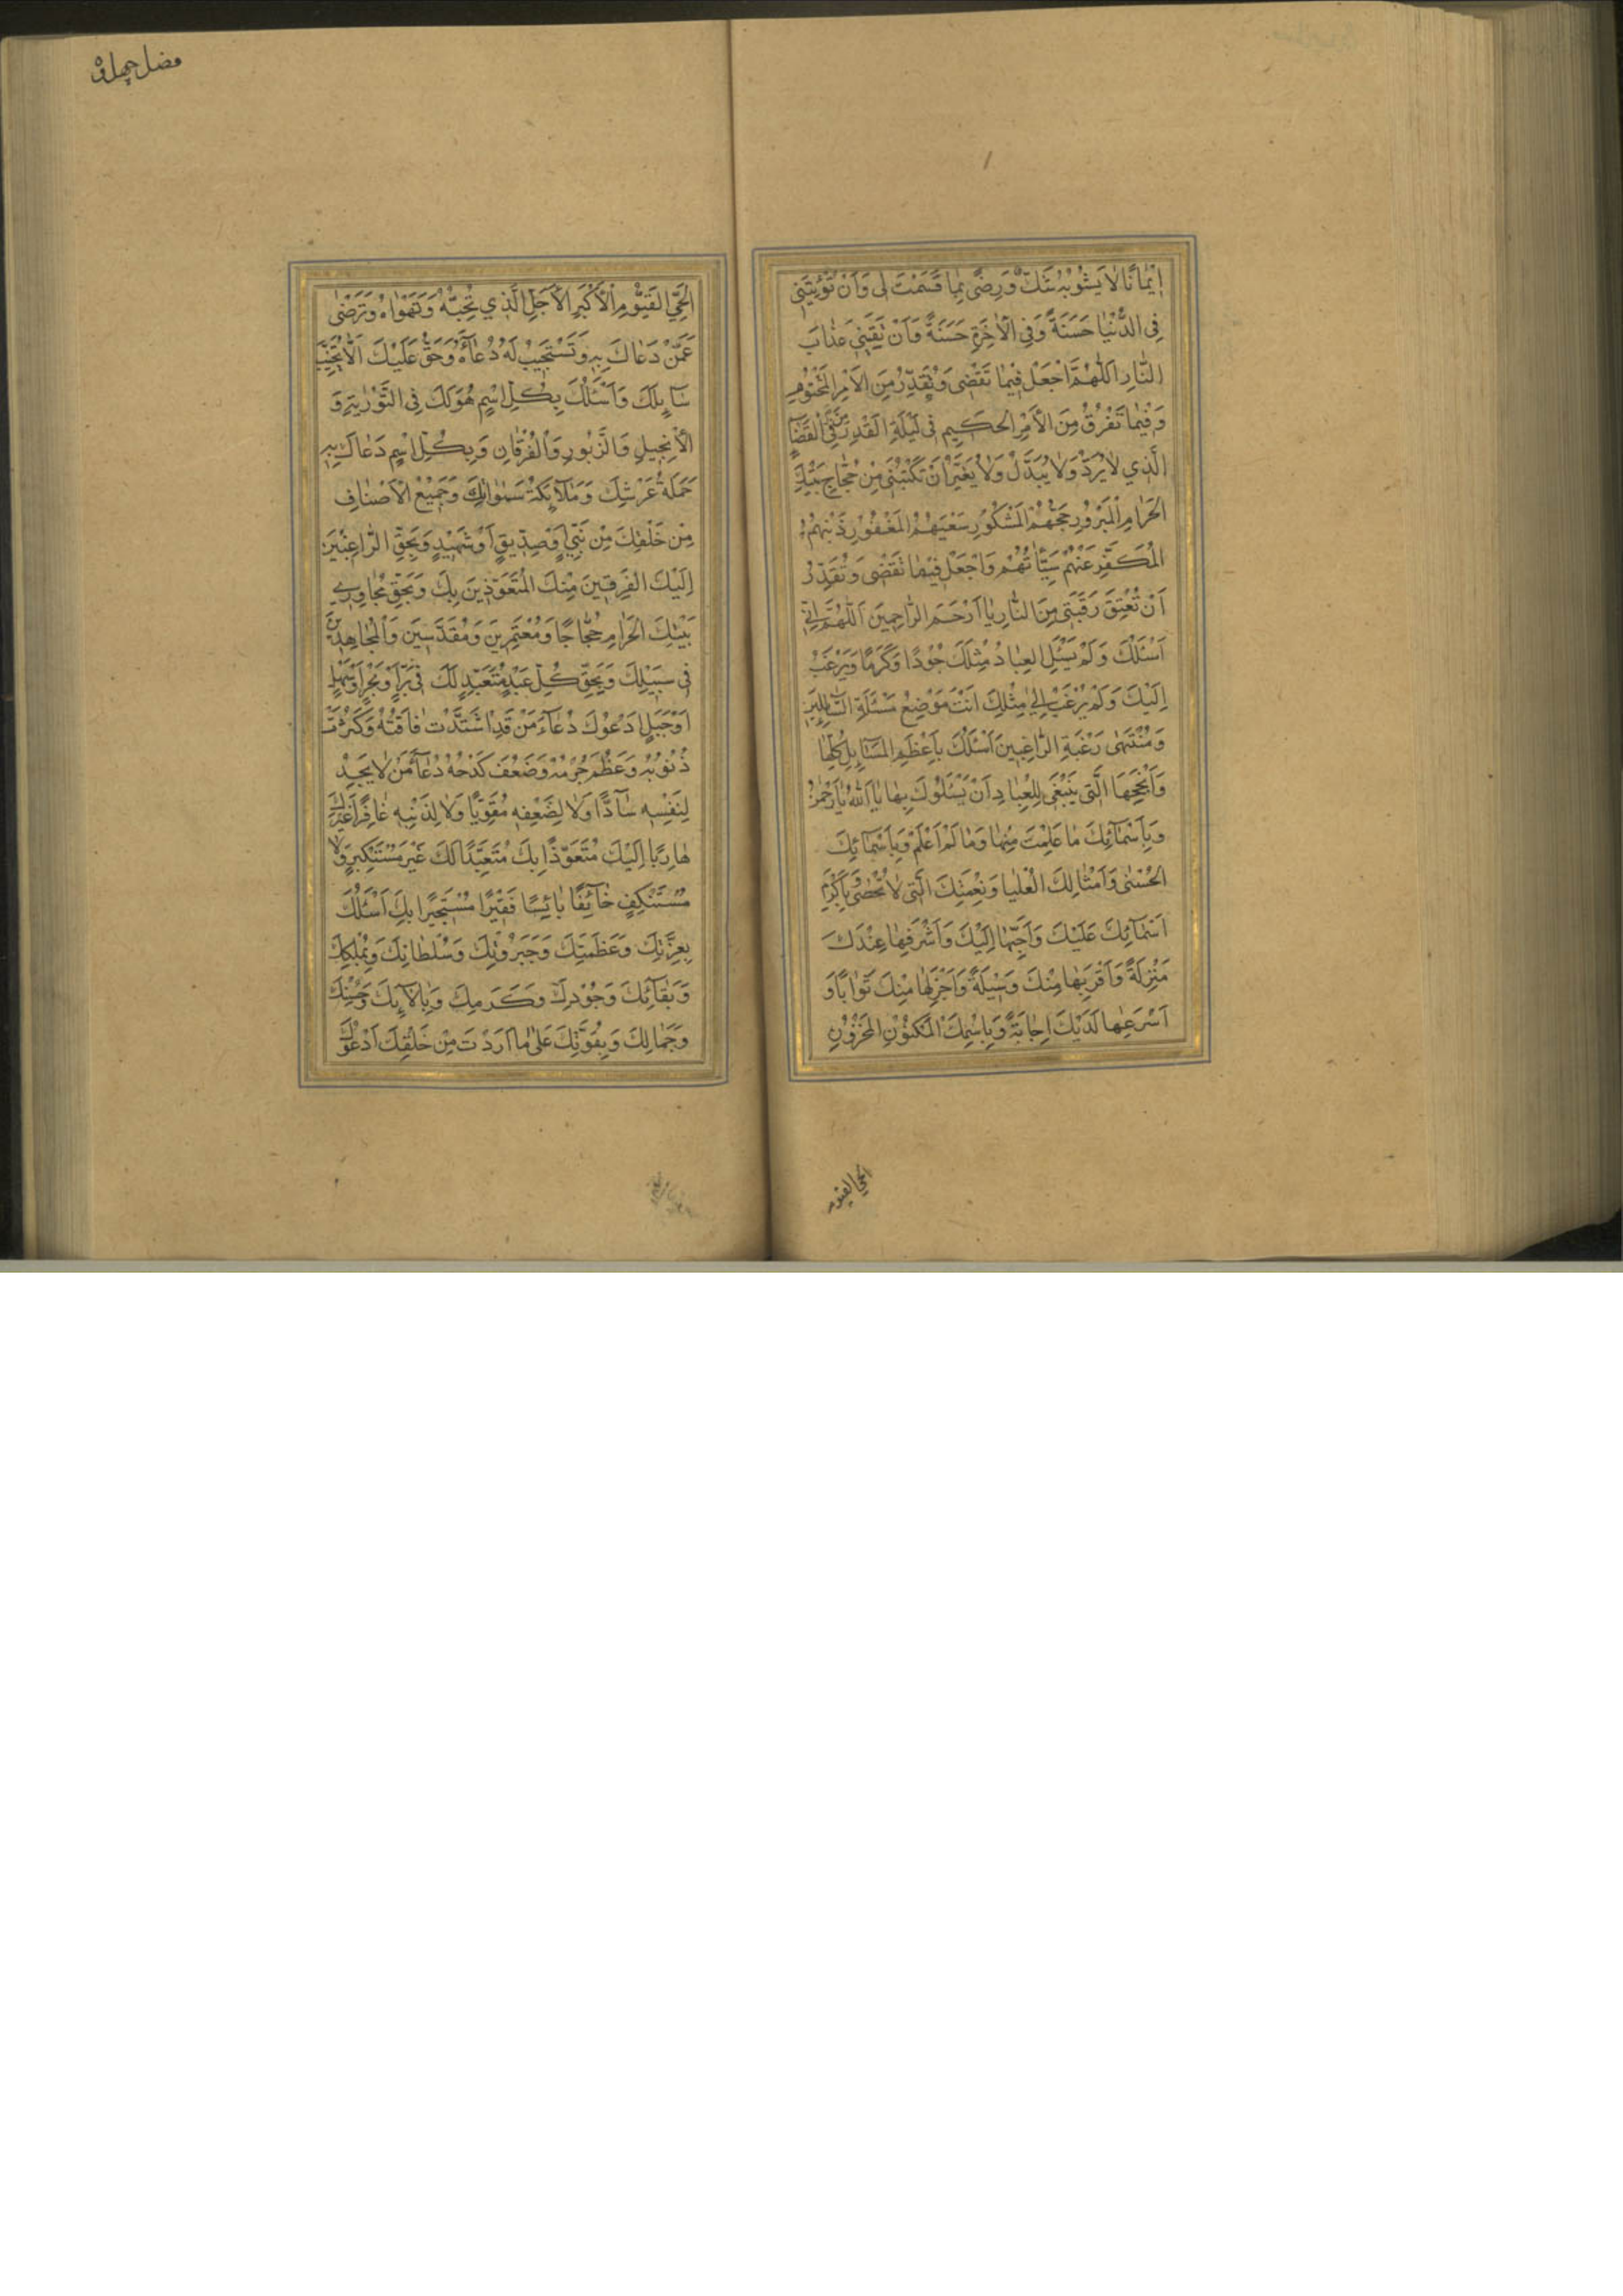 اِيْمَانًا لَا يَشُوبُهُ شَكٌّ وَرِضًى بِمَا قَسَمْتَ لِى وَاَنْ تُؤْتِيَنِى
فِى الدُّنْيَا حَسَنَةً وَفِى الْاٰخِرَةِ حَسَنَةً وَاَنْ تَقِيَنِى عَذَابَ
النَّارِ اَللّٰهُمَّ اجْعَلْ فِيمَا تَقْضِى وَتُقَدِّرُ مِنَ الْاَمْرِ الْمَحْتُومِ
وَفِيمَا تَفْرُقُ مِنَ الْاَمْرِ الْحَكِيمِ فِى لَيْلَةِ الْقَدْرِ فِى الْقَضَاءِ
الَّذِي لَا يُرَدُّ وَلَا يُبَدَّلُ وَلَا يُغَيَّرُ اَنْ تَكْتُبَنِى مِنْ حُجَّاجِ بَيْتِكَ
الْحَرَامِ الْمَبْرُورِ حَجُّهُمْ الْمَشْكُورِ سَعْيُهُمْ الْمَغْفُورِ ذَنْبُهُمْ
الْمُكَفَّرِ عَنْهُمْ سَيِّئَاتُهُمْ وَاجْعَلْ فِيمَا تَقْضِى وَتُقَدِّرُ
اَنْ تُعْتِقَ رَقَبَتِى مِنَ النَّارِ يَا اَرْحَمَ الرَّاحِمِينَ اَللّٰهُمَّ اِنِّى
اَسْئَلُكَ وَلَمْ يَسْئَلِ الْعِبَادُ مِثْلَكَ جُودًا وَكَرَمًا وَيَرْغَبُ
اِلَيْكَ وَلَمْ يُرْغَبْ اِلٰى مِثْلِكَ اَنْتَ مَوْضِعُ مَسْئَلَةِ السَّائِلِينَ
وَمُنْتَهٰى رَغْبَةِ الرَّاغِبِينَ اَسْئَلُكَ بِاَعْظَمِ الْمَسَآئِلِ كُلِّهَا
وَاَنْجَحِهَا الَّتِى يَنْبَغِى لِلْعِبَادِ اَنْ يَسْئَلُوكَ بِهَا يَا اَللّٰهُ يَا رَحْمٰنُ
وَبِاَسْمَآئِكَ مَا عَلِمْتُ مِنْهَا وَمَا لَمْ اَعْلَمْ وَبِاَسْمَآئِكَ
الْحُسْنٰى وَاَمْثَالِكَ الْعُلْيَا وَنِعْمَتِكَ الَّتِى لَا تُحْصٰى وَبِاَكْرَمِ
اَسْمَآئِكَ عَلَيْكَ وَاَحَبِّهَا اِلَيْكَ وَاَشْرَفِهَا عِنْدَكَ
مَنْزِلَةً وَاَقْرَبِهَا مِنْكَ وَسِيلَةً وَاَجْزَلِهَا مِنْكَ ثَوَابًا وَ
اَسْرَعِهَا لَدَيْكَ اِجَابَةً وَبِاسْمِكَ الْمَكْنُونِ الْمَخْزُونِ
الحي القيوم
الْحَىِّ الْقَيُّومِ الْاَكْبَرِ الْاَجَلِّ الَّذِي تُحِبُّهُ وَتَهْوَاهُ وَتَرْضٰى
عَمَّنْ دَعَاكَ بِهِ وَتَسْتَجِيبُ لَهُ دُعَآءَهُ وَحَقٌّ عَلَيْكَ اَلَّا تُخَيِّبَ
سَآئِلَكَ وَاَسْئَلُكَ بِكُلِّ اسْمٍ هُوَ لَكَ فِى التَّوْرٰيةِ وَ
الْاِنْجِيلِ وَالزَّبُورِ وَالْفُرْقَانِ وَبِكُلِّ اسْمٍ دَعَاكَ بِهِ
حَمَلَةُ عَرْشِكَ وَمَلَآئِكَةُ سَمٰوَاتِكَ وَجَمِيعُ الْاَصْنَافِ
مِنْ خَلْقِكَ مِنْ نَبِيٍّ اَوْ صِدِّيقٍ اَوْ شَهِيدٍ وَبِحَقِّ الرَّاغِبِينَ
اِلَيْكَ الْفَرِقِينَ مِنْكَ الْمُتَعَوِّذِينَ بِكَ وَبِحَقِّ مُجَاوِرِي
بَيْتِكَ الْحَرَامِ حُجَّاجًا وَمُعْتَمِرِينَ وَمُقَدِّسِينَ وَالْمُجَاهِدِينَ
فِى سَبِيلِكَ وَبِحَقِّ كُلِّ عَبْدٍ مُتَعَبِّدٍ لَكَ فِى بَرٍّ اَوْ بَحْرٍ اَوْ سَهْلٍ
اَوْ جَبَلٍ اَدْعُوكَ دُعَآءَ مَنْ قَدِ اشْتَدَّتْ فَاقَتُهُ وَكَثُرَتْ
ذُنُوبُهُ وَعَظُمَ جُرْمُهُ وَضَعُفَ كَدْحُهُ دُعَآءَ مَنْ لَا يَجِدُ
لِنَفْسِهِ سَآدًّا وَلَا لِضَعْفِهِ مُقَوِّيًا وَلَا لِذَنْبِهِ غَافِرًا غَيْرَكَ
هَارِبًا اِلَيْكَ مُتَعَوِّذًا بِكَ مُتَعَبِّدًا لَكَ غَيْرَ مُسْتَكْبِرٍ وَلَا
مُسْتَنْكِفٍ خَآئِفًا بَائِسًا فَقِيرًا مُسْتَجِيرًا بِكَ اَسْئَلُكَ
بِعِزَّتِكَ وَعَظَمَتِكَ وَجَبَرُوتِكَ وَسُلْطَانِكَ وَبِمُلْكِكَ
وَبِبَقَآئِكَ وَجُودِكَ وَكَرَمِكَ وَبِآلَآئِكَ وَحُسْنِكَ
وَجَمَالِكَ وَبِقُوَّتِكَ عَلٰى مَا اَرَدْتَ مِنْ خَلْقِكَ اَدْعُوكَ